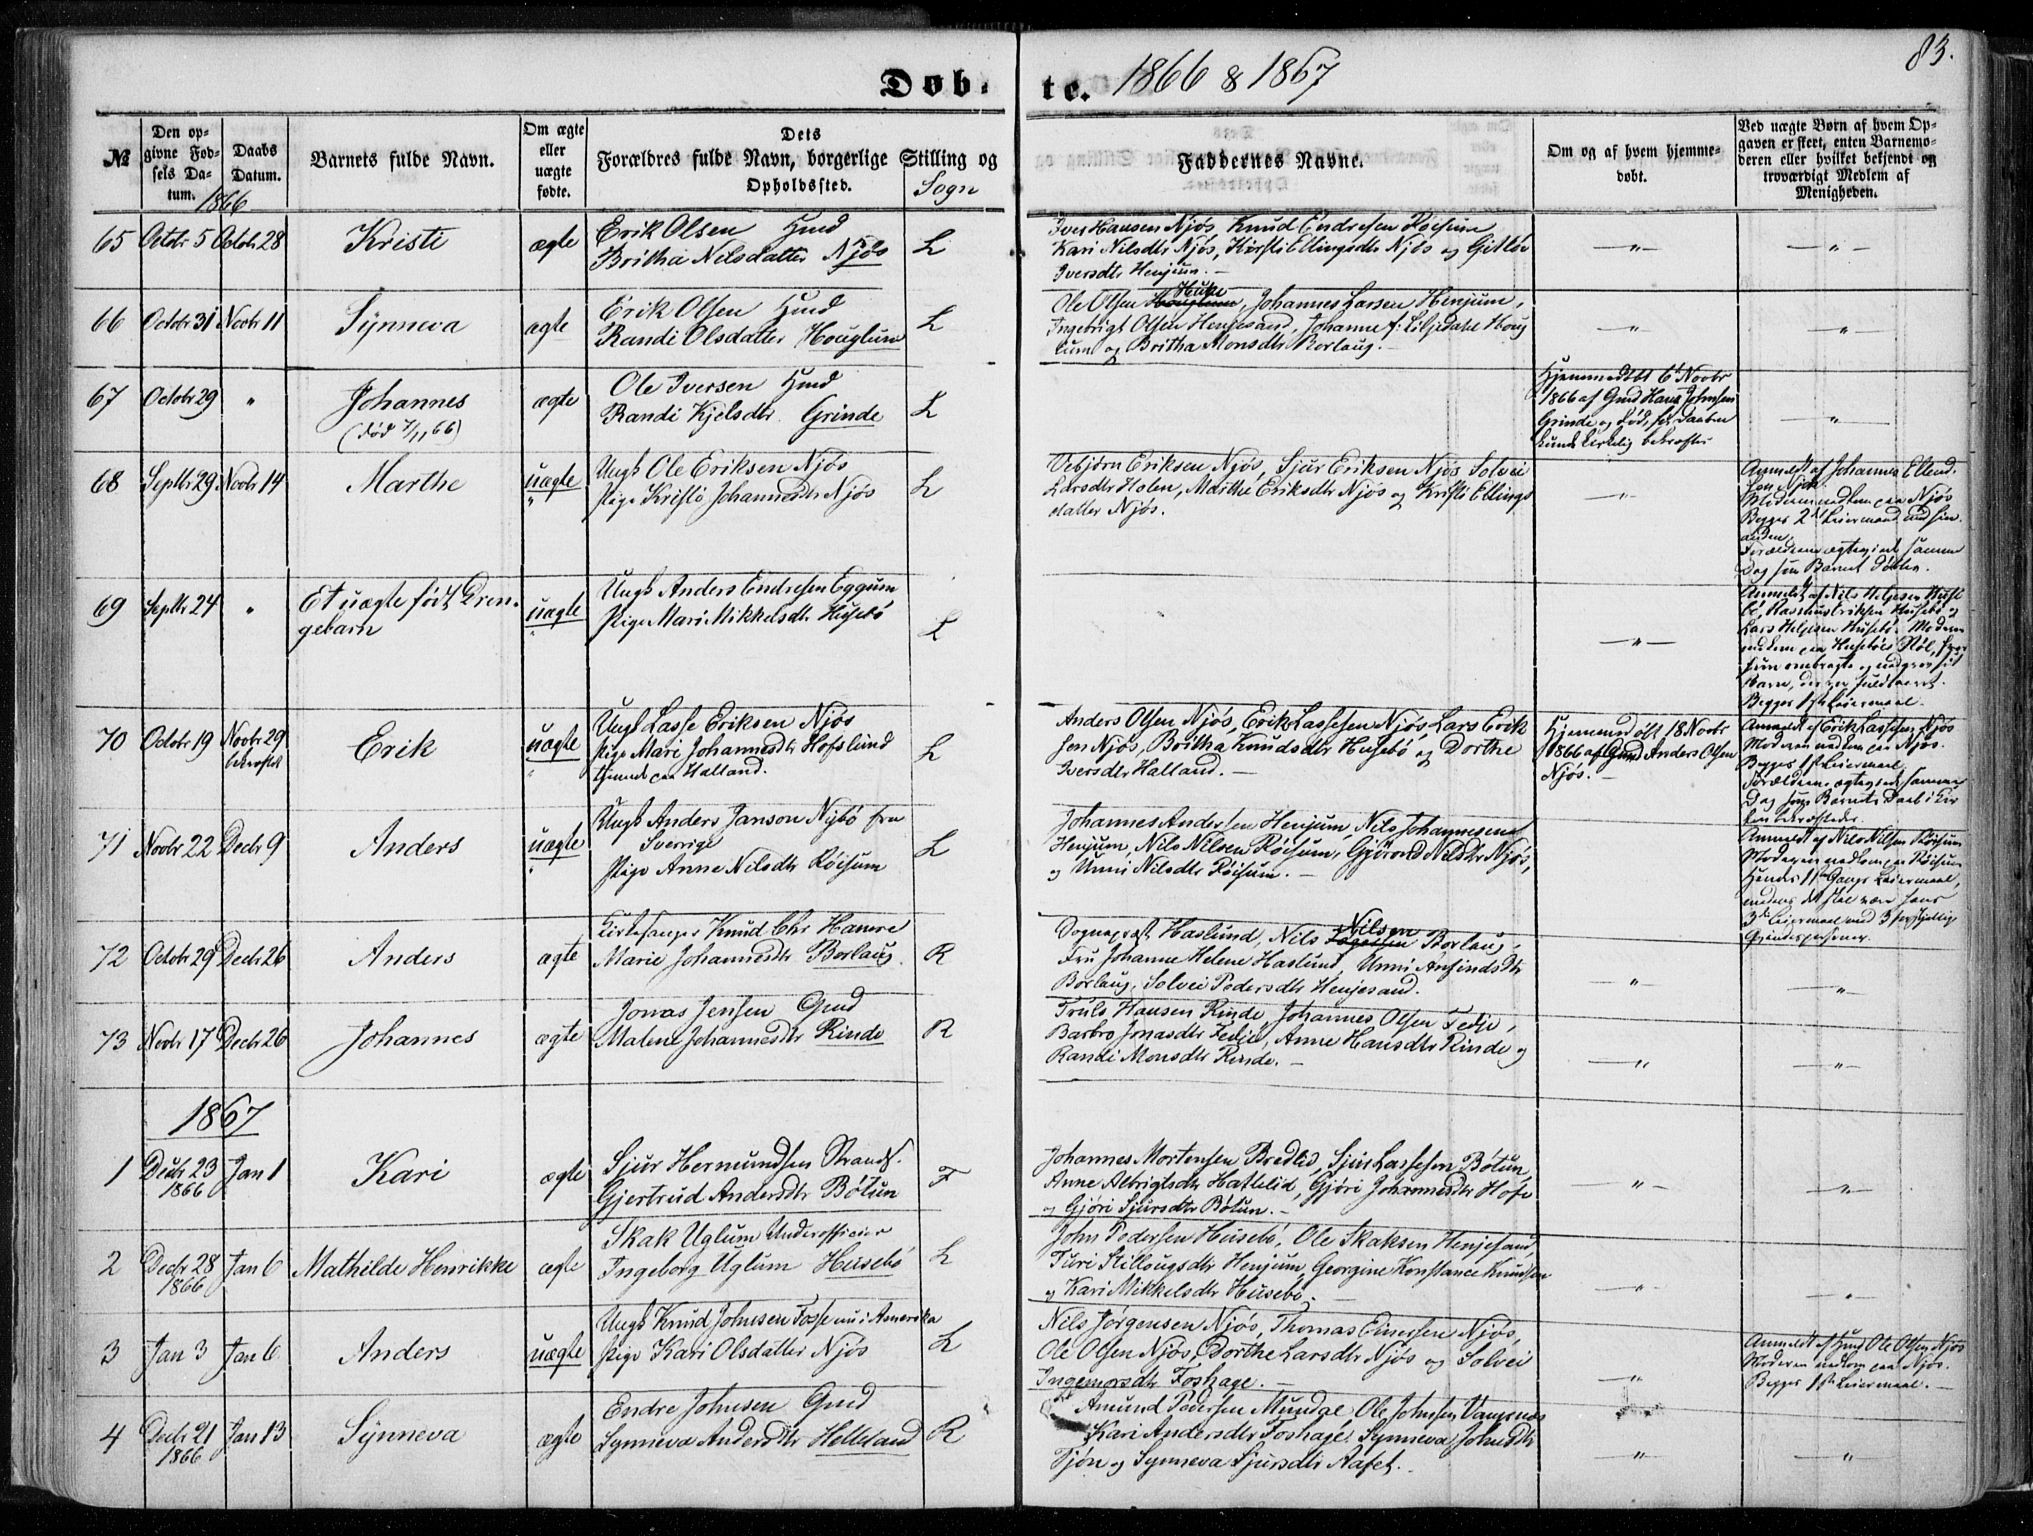 83.
Døb-
te. 1866 & 1867
№
Den op-
givne Fød-
sels Da-
tum.
Daabs
Datum.
1866
Barnets fulde Navn.
Om ægte
eller
uægte
fødte.
Dets
Forældres fulde Navn, borgerlige Stilling og
Opholdssted.
Sogn
Faddernes Navne.
Om og af hvem hjemme-
døbt.
Ved uægte Børn af hvem Op-
gaven er skeet, enten Barnemo-
deren eller hvilket bekjendt og
troværdigt Medlem af
Menigheden.
65 Octobr 5 Octobr 28 Kristi ægte Erik Olsen Hmd
Britha Nilsdatter Njøs L
Iver Hansen Njøs, Knud Endresen Røisum
Kari Nilsdtr Njøs, Kirsti Ellingsdtr Njøs og Gitlør
Iversdtr Henjum. —
—"— —"—
66 Octobr 31 Novbr 11 Synneva ægte Erik Olsen Hmd
Randi Olsdatter Houglum L
Huke
Ole Olsen Houglum, Johannes Larsen Henjum,
Ingebrigt Olsen Henjesand, Johanne f. Liljedahl Houg
lum og Britha Monsdtr Borlaug. —
—"— —"—
67 Octobr 29 " Johannes
(død 7/11 66) ægte Ole Iversen Hmd
Randi Kjelsdtr. Grinde L
Hjemmedøbt 6t Novbr
1866 af Gmd Hans Johnsen
Grinde og død, før Daaben
kunde kirkelig bekræftes
—"—
68 Septbr 29 Novbr 14 Marthe uægte
" Ungk Ole Eriksen Njøs
Pige Kristi Johannesdtr Njøs L
Vebjørn Eriksen Njøs, Sjur Eriksen Njøs Solvei
Larsdtr Holen, Marthe Eriksdtr Njøs og Kristi Ellings
datter Njøs.
—"—
Anmeldt af Johannes Ellend-
sen Njøs.
Moderen nedkom paa Njøs
Begges 2d Leiermaal med hin-
anden.
Forældrene ægteviet samme
Dag som Barnet døbtes.
69 Septbr 24 " Et uægte født Dren-
gebarn uægte
" Ungk Anders Endresen Eggum
Pige Mari Mikkelsdtr Husebø L
—"—
Anmeldt af Nils Helgesen Huse
bø, Rasmus Eriksen Husebø og
Lars Helgesen Husebø. Moderen
nedkom paa Husebøes Støl, hvor
hun ombragte og nedgrov sit
Barn, der var fuldbaaret.
Begges 1ste Leiermaal.
70 Octobr 19 Novbr 29
bekræftet Erik uægte
" Ungk Lasse Eriksen Njøs
Pige Mari Johannesdtr Hofslund
tjenende paa Halland. L
Anders Olsen Njøs, Erik Lassesen Njøs, Lars Erik
sen Njøs, Britha Knudsdtr Husebø og Dorthe
Iversdtr Halland. —
Hjemmedøbt 18 Novbr
1866 af Gmd Anders Olsen
Njøs. —
Anmeldt af Erik Lassesen Njøs
Moderen nedkom paa Njøs.
Begges 1ste Leiermaal
Forældrene ægteviet samme
Dag som Barnets Daab i Kir
ken bekræftedes.
71 Novbr 22 Decbr 9 Anders uægte
" Ungk Anders Janson Nybø fra
Sverrige
Pige Anne Nilsdtr Røisum L
Johannes Andersen Henjum, Nils Johannesen
Henjum, Nils Nilsen Røisum, Gjørond Nilsdtr Njøs,
og Unni Nilsdtr Røisum. —
Anmeldt af Nils Nilsen Røisum
Moderen nedkom paa Røisum
Hendes 1ste Gangs Leiermaal,
medens det skal være hans
3die Leiermaal med 3 forskjellige
Qvindepersoner.
72 Octobr 29 Decbr 26 Anders ægte Kirkesanger Knud Chr Hamre
Marie Johannesdtr Borlaug R
Nilsen
Sogneprest Haslund, Nils Borlaug,
Fru Johanne Helene Haslund, Unni Anfindsdtr
Borlaug, Solvei Pedersdtr Henjesand.
—"— —"—
73 Novbr 17 Decbr 26 Johannes ægte Jonas Jensen Gmd
Malene Johannesdtr Rinde R
Truls Hansen Rinde, Johannes Olsen Fedje,
Barbro Jonasdtr Fedje, Anne Hansdtr Rinde og
Randi Monsdtr Rinde. —
—"— —"—
1867
1 Decbr 23
1866 Jan 1 Kari ægte Sjur Hermundsen Strands.
Gjertrud Andersdtr Bøtun F
Johannes Mortensen Bredlid, Sjur Lassesen Bøtun,
Anne Albrigtsdtr Hatlelid, Gjøri Johannesdtr Hofe
og Gjøri Sjursdtr Bøtun. —
—"— —"—
2 Decbr 28
1866 Jan 6 Mathilde Henrikke ægte Skak Uglum Underofficier
Ingeborg Uglum Husebø L
John Pedersen Husebø, Ole Skaksen Henjesand,
Turi Stillougsdtr Henjum, Georgine Konstance Knudsen
og Kari Mikkelsdtr Husebø —
—"— —"—
3 Jan 3 Jan 6 Anders uægte Ungk Knud Johnsen Fosse nu i Amerika
Pige Kari Olsdatter Njøs L
Nils Jørgensen Njøs, Thomas Einersen Njøs,
Ole Olsen Njøs, Dorthe Larsdtr Njøs og Solvei
Ingemorsdtr Foshage. —
—"—
Anmeldt af Hmd Ole Olsen Njøs
Moderen nedkom paa Njøs.
Begges 1ste Leiermaal. —
4 Decbr 21
1866 Jan 13 Synneva ægte Endre Johnsen Gmd
Synneva Andersdtr Helleland R
Amund Pedersen Mundal, Ole Johnsen Vangsnæs
Kari Andersdtr Foshage, Synneva Johnsdtr
Tjøn og Synneva Sjursdtr Aafet.
" —"—